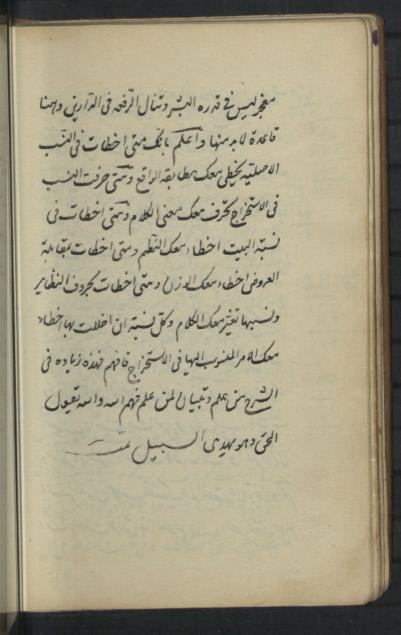 معجز ليس في قدره البشر وتنال الرفعه في الدارين وهنا
قاعدة لابد منها واعلم بانك متى اخطات في النسب
الاصليه يخطى معك مطابقة الواقع ومتى حرفت النسب
في الاستخراج تحرف معك معنى الكلام ومتى اخطات في
نسبة البيت اخطاء معك النظم ومتى اخطات بمقابلة
العروض اخطاء معك الوزن ومتى اخطات بحروف النظاير
ونسبها تغير معك الكلام وكل نسبة ان اخلات بها اخطاء
معك الامر المنسوب اليها في الاستخراج فافهم فهذه زياده في
الشرح لمن يعلم وتبيان لمن علم فهم الله والله يقول
الحق وهو يهدى السبيل تمت